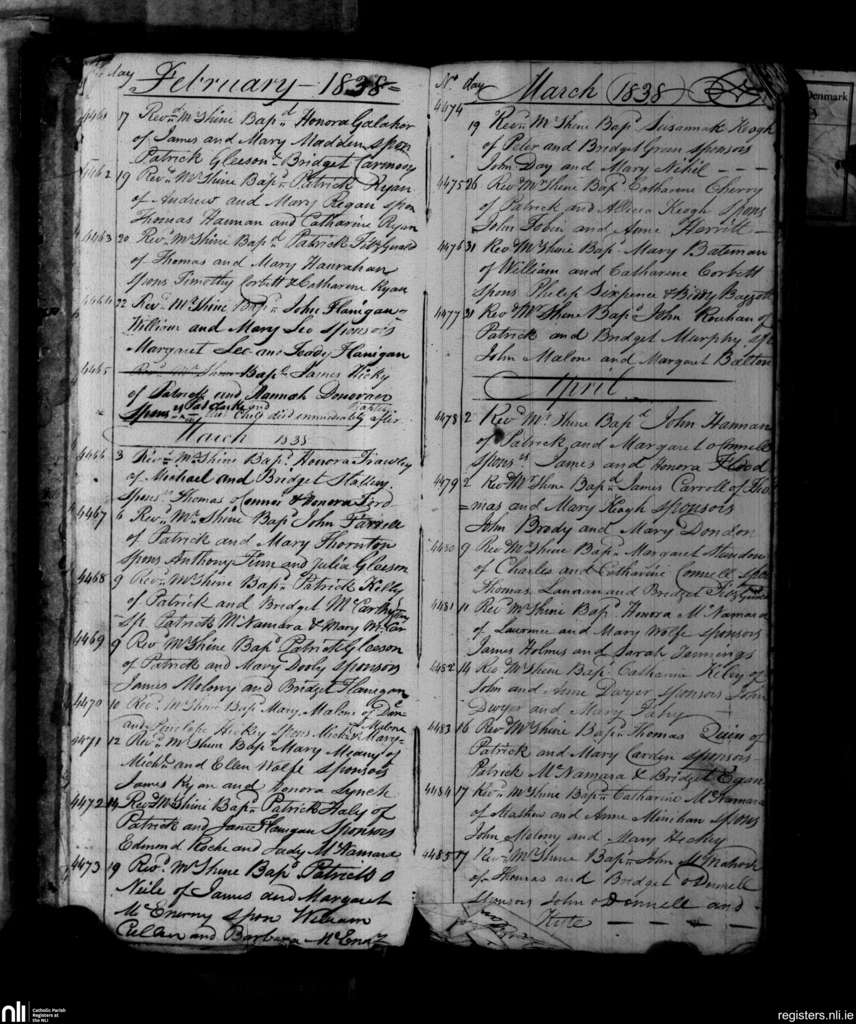 No day February 1838
4461 17 Revd Mr Shine Bapd Honora Galahor
of James and Mary Madden spon
Patrick Gleeson & Bridget Carmody
4462 19 Revd Mr Shine Bapd Patrick Ryan
of Andrew and Mary Regan spon
Thomas Hannan and Catharine Ryan
4463 20 Revd Mr Shine Bapd Patrick Fitzgerald
of Thomas and Mary Hanrahan
spons Timothy Corbett & Catharine Ryan
4464 22 Revd Mr Shine Bapd John Flanigan
William and Mary Leo Sponsors
Margaret Leo and Teddy Flanigan
4465 Bapd James Hicky
of Patrick and Hannah Donovan
Spons Pat Clarke and
the Child died immediately after
March 1838
4466 3 Revd Mr Shine Bapd Honora
of Michael and Bridget
Sponsrs Thomas o Connor & Honora Ford
4467 6 Revd Mr Shine Bapd John Farrell
of Patrick and Mary Thornton
spons Anthony Finn and Julia Gleeson
4468 9 Revd Mr Shine Bapd Patrick Kelly
of Patrick and Bridget McCarthy
Sp. Patrick McNamara & Mary
4469 9 Revd Mr Shine Bapd Patrick Gleeson
of Patrick and Mary Dooly Sponsors
James Molony and Bridget Flanigan
4470 10 Revd Mr Shine Bapd Mary Malone of Dan
and Penelope Hickey Spons Michl & Mary Malone
4471 12 Revd Mr Shine Bapd Mary Meany of
Michl and Ellen Wolfe Sponsors
James Ryan and Honora Lynch
4472 14 Revd Mr Shine Bapd Patrick Haly of
Patrick and Jane Flanigan Sponsors
Edmond Roche and Judy McNamara
4473 19 Revd Mr Shine Bapd Patrick O
Neile of James and Margaret
McEnerny Spon William
Cullen and Barbara
No day March 1838
4474
19 Revd Mr Shine Bapd Susannah Keogh
of Peter and Bridget Green sponsors
John Day and Mary Nihil
4475 26 Revd Mr Shine Bapd Catharine Cherry
of Patrick and Allicia Keogh Spons
John Tobin and Anne Herritt
4476 31 Revd Mr Shine Bapd Mary Bateman
of William and Catharine Corbett
spons Philip Sixpence & Biddy Baggott
4477 31 Revd Mr Shine Bapd John Rouhan of
Patrick and Bridget Murphy sps
John Malone and Margaret Balton
April
4478 2 Revd Mr Shine Bapd John Hannan
of Patrick and Margaret o Connell
Sponsrs James and Honora Flood
4479 2 Revd Mr Shine Bapd James Carroll of Tho
=mas and Mary Keogh sponsors
John Brody and Mary Dondon
4480 9 Revd Mr Shine Bapd Margaret
of Charles and Catharine Connell spon
Thomas Lannan and Bridget Fitzgerald
4481 11 Revd Mr Shine Bapd Honora McNamara
of Laurence and Mary Wolfe sponsors
James Holmes and Sarah Jennings
4482 14 Revd Mr Shine Bapd Catharine Kiley of
John and Anne Dwyer sponsors John
Dwyer and Mary Fahy
4483 16 Revd Mr Shine Bapd Thomas Quin of
Patrick and Mary Cardyn sponsors
Patrick McNamara & Bridget Egan
4484 17 Revd Mr Shine Bapd Catharine McNamara
of Mathew and Anne Minihan Spons
John Molony and Mary Hickey
4485 17 Revd Mr Shine Bapd John McMahon
of Thomas and Bridget oDonnell
Sponsors John oDonnell and
Denmark
nli Catholic Parish
Registers at
the NLI
registers.nli.ie